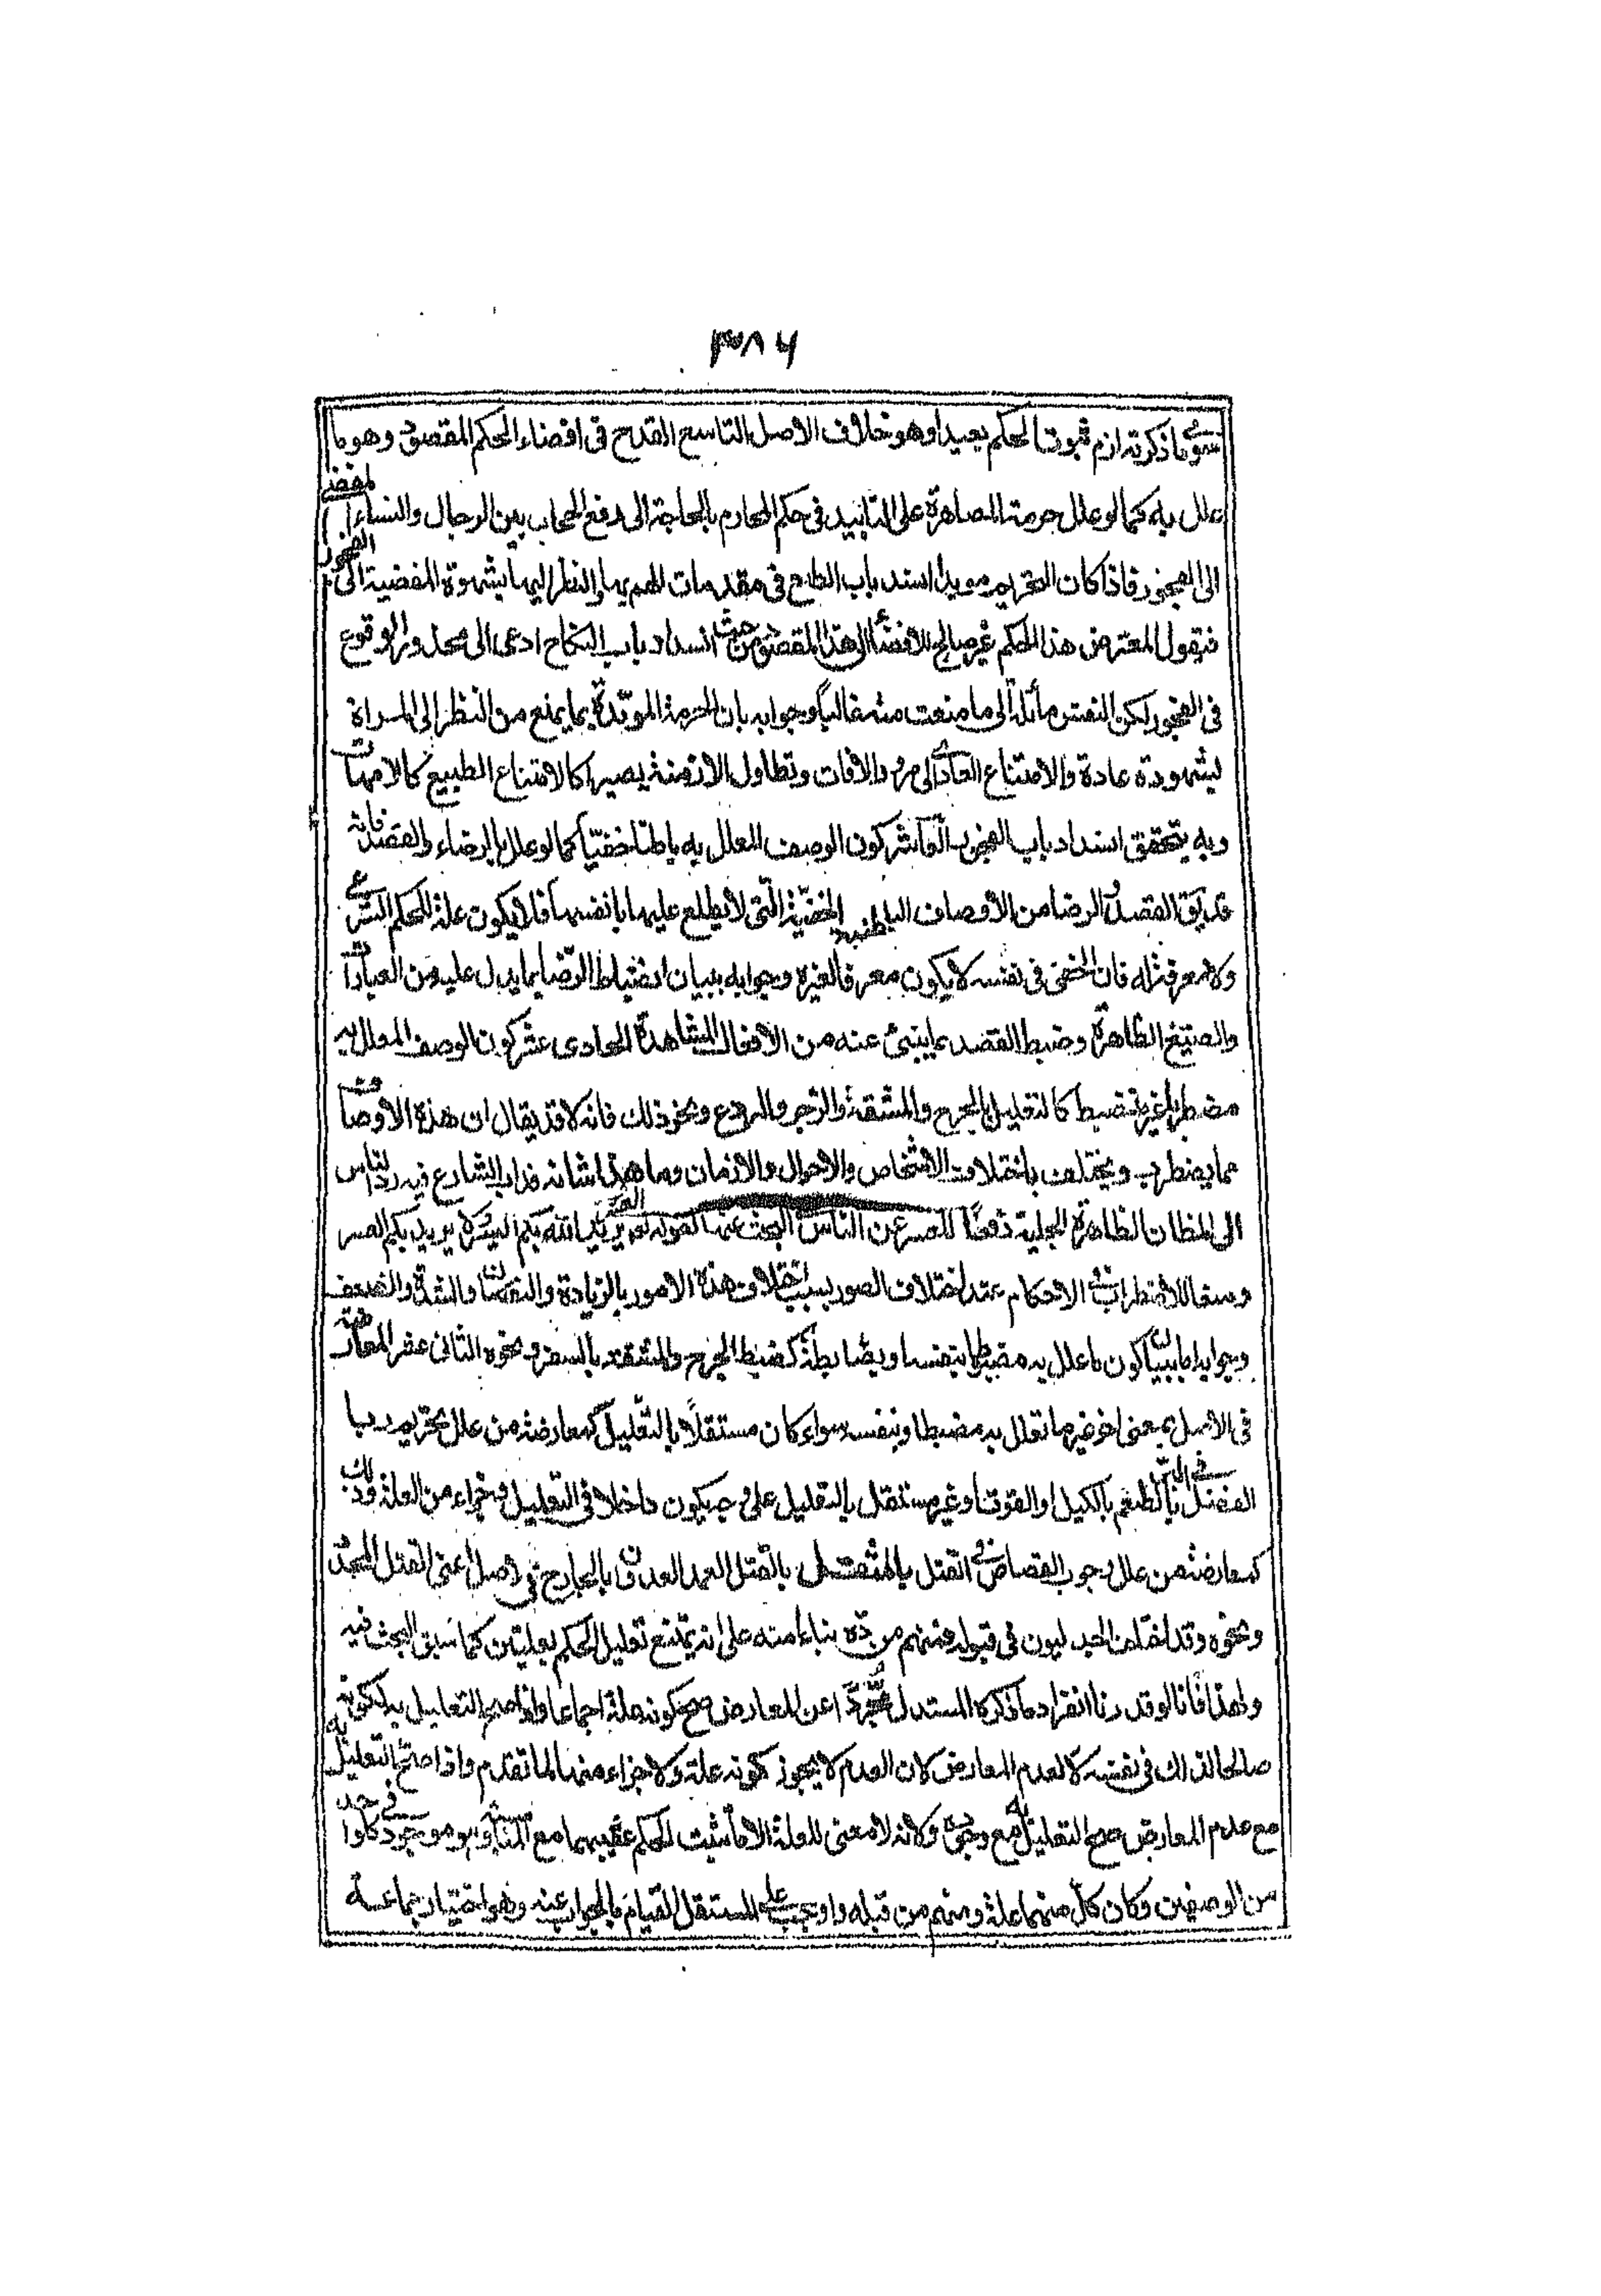 ٣٨٦
سوى ما ذكرته لزم ثبوت الحكم بعيدا وهو خلاف الاصل التاسع القدح فى افضاء الحكم المقصود وهو ما
علل به كما لو علل حرمة المصاهرة على التابيد فى حكم المحارم بالحاجة الى رفع الحجاب بين الرجال والنساء المفضى
الى الفجور فاذا كان التحريم موبدا انسد باب الطمع فى مقدمات الهم بها والنظر اليها بشهوة المفضية الى الفجور
فيقول المعترض هذا الحكم غير صالح للافضاء الى هذا المقصود من حيث انسداد باب النكاح ادعى الى محذور الوقوع
فى الفجور لكون النفس مائلة الى ما منعت منه غالبا وجوابه بان الحرمة الموبدة بما يمنع من النظر الى المراة
بشهوده عادة والامتناع العادى الى مر والافات وتطاول الازمنة يصير كالامتناع الطبيعى كالامهات
وبه يتحقق انسداد باب الفجور العاشر كون الوصف المعلل به باطنا خفيا كما لو علل بالرضاء والقصد فانه
قد يق القصد والرضا من الاوصاف الباطنية الخفية التى لا يطلع عليها بانفسها فلا يكون علة للحكم الشرعى
ولا معرفة له فان الخفى فى نفسه لا يكون معرفا لغيره وجوابه ببيان انضباط الرضا بما يدل عليه من العبارات
والصيغ الظاهرة وضبط القصد بما ينبئ عنه من الافعال المشاهدة الحادى عشر كون الوصف المعلل به
مضطربا غير منضبط كالتعليل بالحرج والمشقة والزجر والردع ونحو ذلك فانه لا قد يقال ان هذه الاوصاف
مما يضطرب ويختلف باختلاف الاشخاص والاحوال والازمان وما هذا شانه فداب الشارع فيه رد الناس
الى المظان الظاهرة الجلية دفعا للعسر عن الناس البحث عنها لقوله تعم يريد الله بكم اليسر ولا يريد بكم العسر
ومنعا للاضطراب فى الاحكام عند اختلاف الصور بسبب اختلاف هذه الامور بالزيادة والنقصان والشدة والضعف
وجوابه اما ببيان كون ما علل به مضبطا بنفسه او بضابطة كضبط الحرج والمشقة بالسفر ونحوه الثانى عشر المعارضة
فى الاصل بمعنى اخر غير ما تعلل به مضبطا وبنفسه سواء كان مستقلا بالتعليل كمعارضة من علل تحريم ربا
الفضل فى البر بالطعم بالكيل او القوت او غير مستقل بالتعليل على وجه يكون داخلا فى التعليل وجزاء من العلة وذلك
كمعارضة من علل وجوب القصاص فى القتل بالمثقل بالقتل العمد العدوان بالجارح فى الاصل اعنى القتل المحدد
ونحوه وقد اختلف الجدليون فى قبوله فمنهم من رده بناء منه على انه يمتنع تعليل الحكم بعلتين كما سبق البحث فيه
ولهذا فانا لو قدرنا انفراد ما ذكره المستدل مجردا عن المعارض صح كونه علة اجماعا واذا صح التعليل به لكونه
صالحا لذلك فى نفسه لا لعدم المعارض لان العدم لا يجوز كونه علة ولا جزاء منها لما تقدم واذا صح التعليل به
مع عدم المعارض صح التعليل به مع وجوده ولانه لا معنى للعلة الا ما يثبت الحكم عقيبها مع المناسبة وهو موجود فى كل واحد
من الوصفين وكان كل منهما علة ومنهم من قبله واوجب على المستقل القيام بالجواب عنه وهو اختيار جماعة